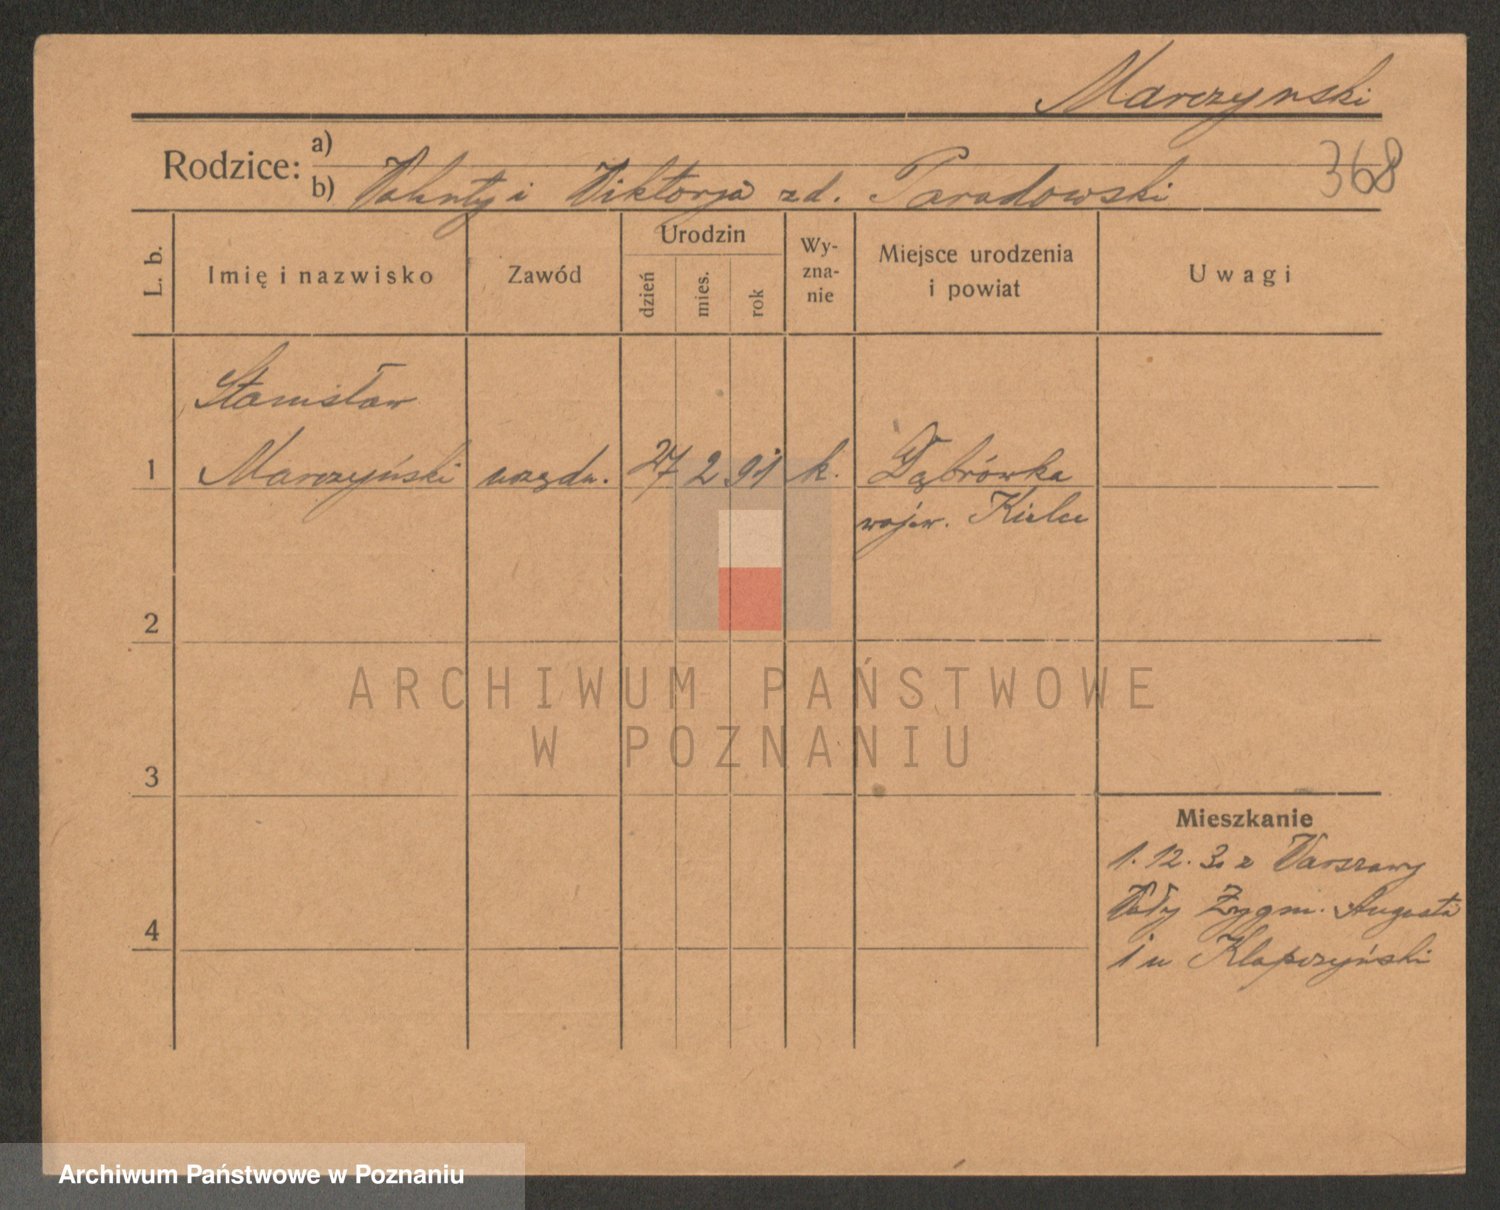 Marczynski
368
Rodzice: a)
b) Walenty i Wiktorja zd. Paradowski
L. b.
Imię i nazwisko
Zawód
Urodzin
dzień
mies.
rok
Wy-
zna-
nie
Miejsce urodzenia
i powiat
Uwagi
Stanisław
1 Marczyński urzędn. 27 2 91 k. Dąbrówka
wojew. Kielce
2
3
4
Mieszkanie
1.12.3. z Warszawy
Wały Zygm. Augusta
1 u Klapczyński
ARCHIWUM PAŃSTWOWE
W POZNANIU
Archiwum Państwowe w Poznaniu